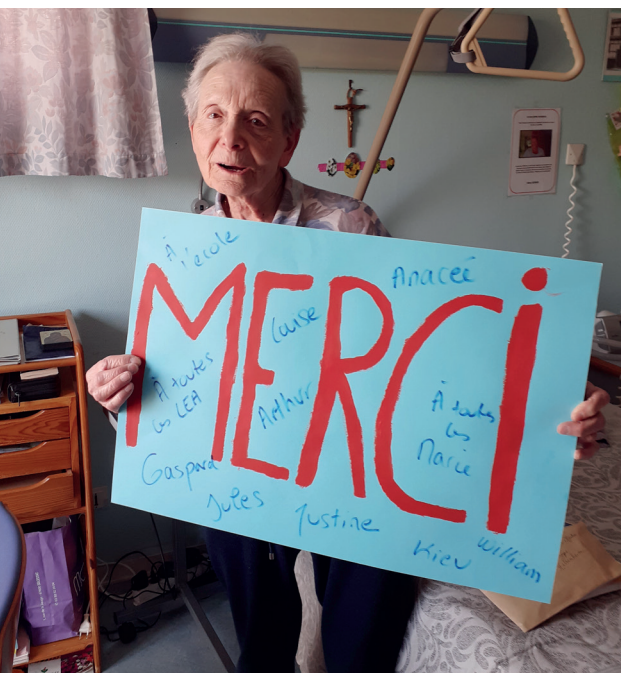 À
l'école
Anaceé
MERCI
Louise
À toutes
les LEA
Arthur
À toutes
les
Marie
Gaspard
Jules
Justine
Kieu
William